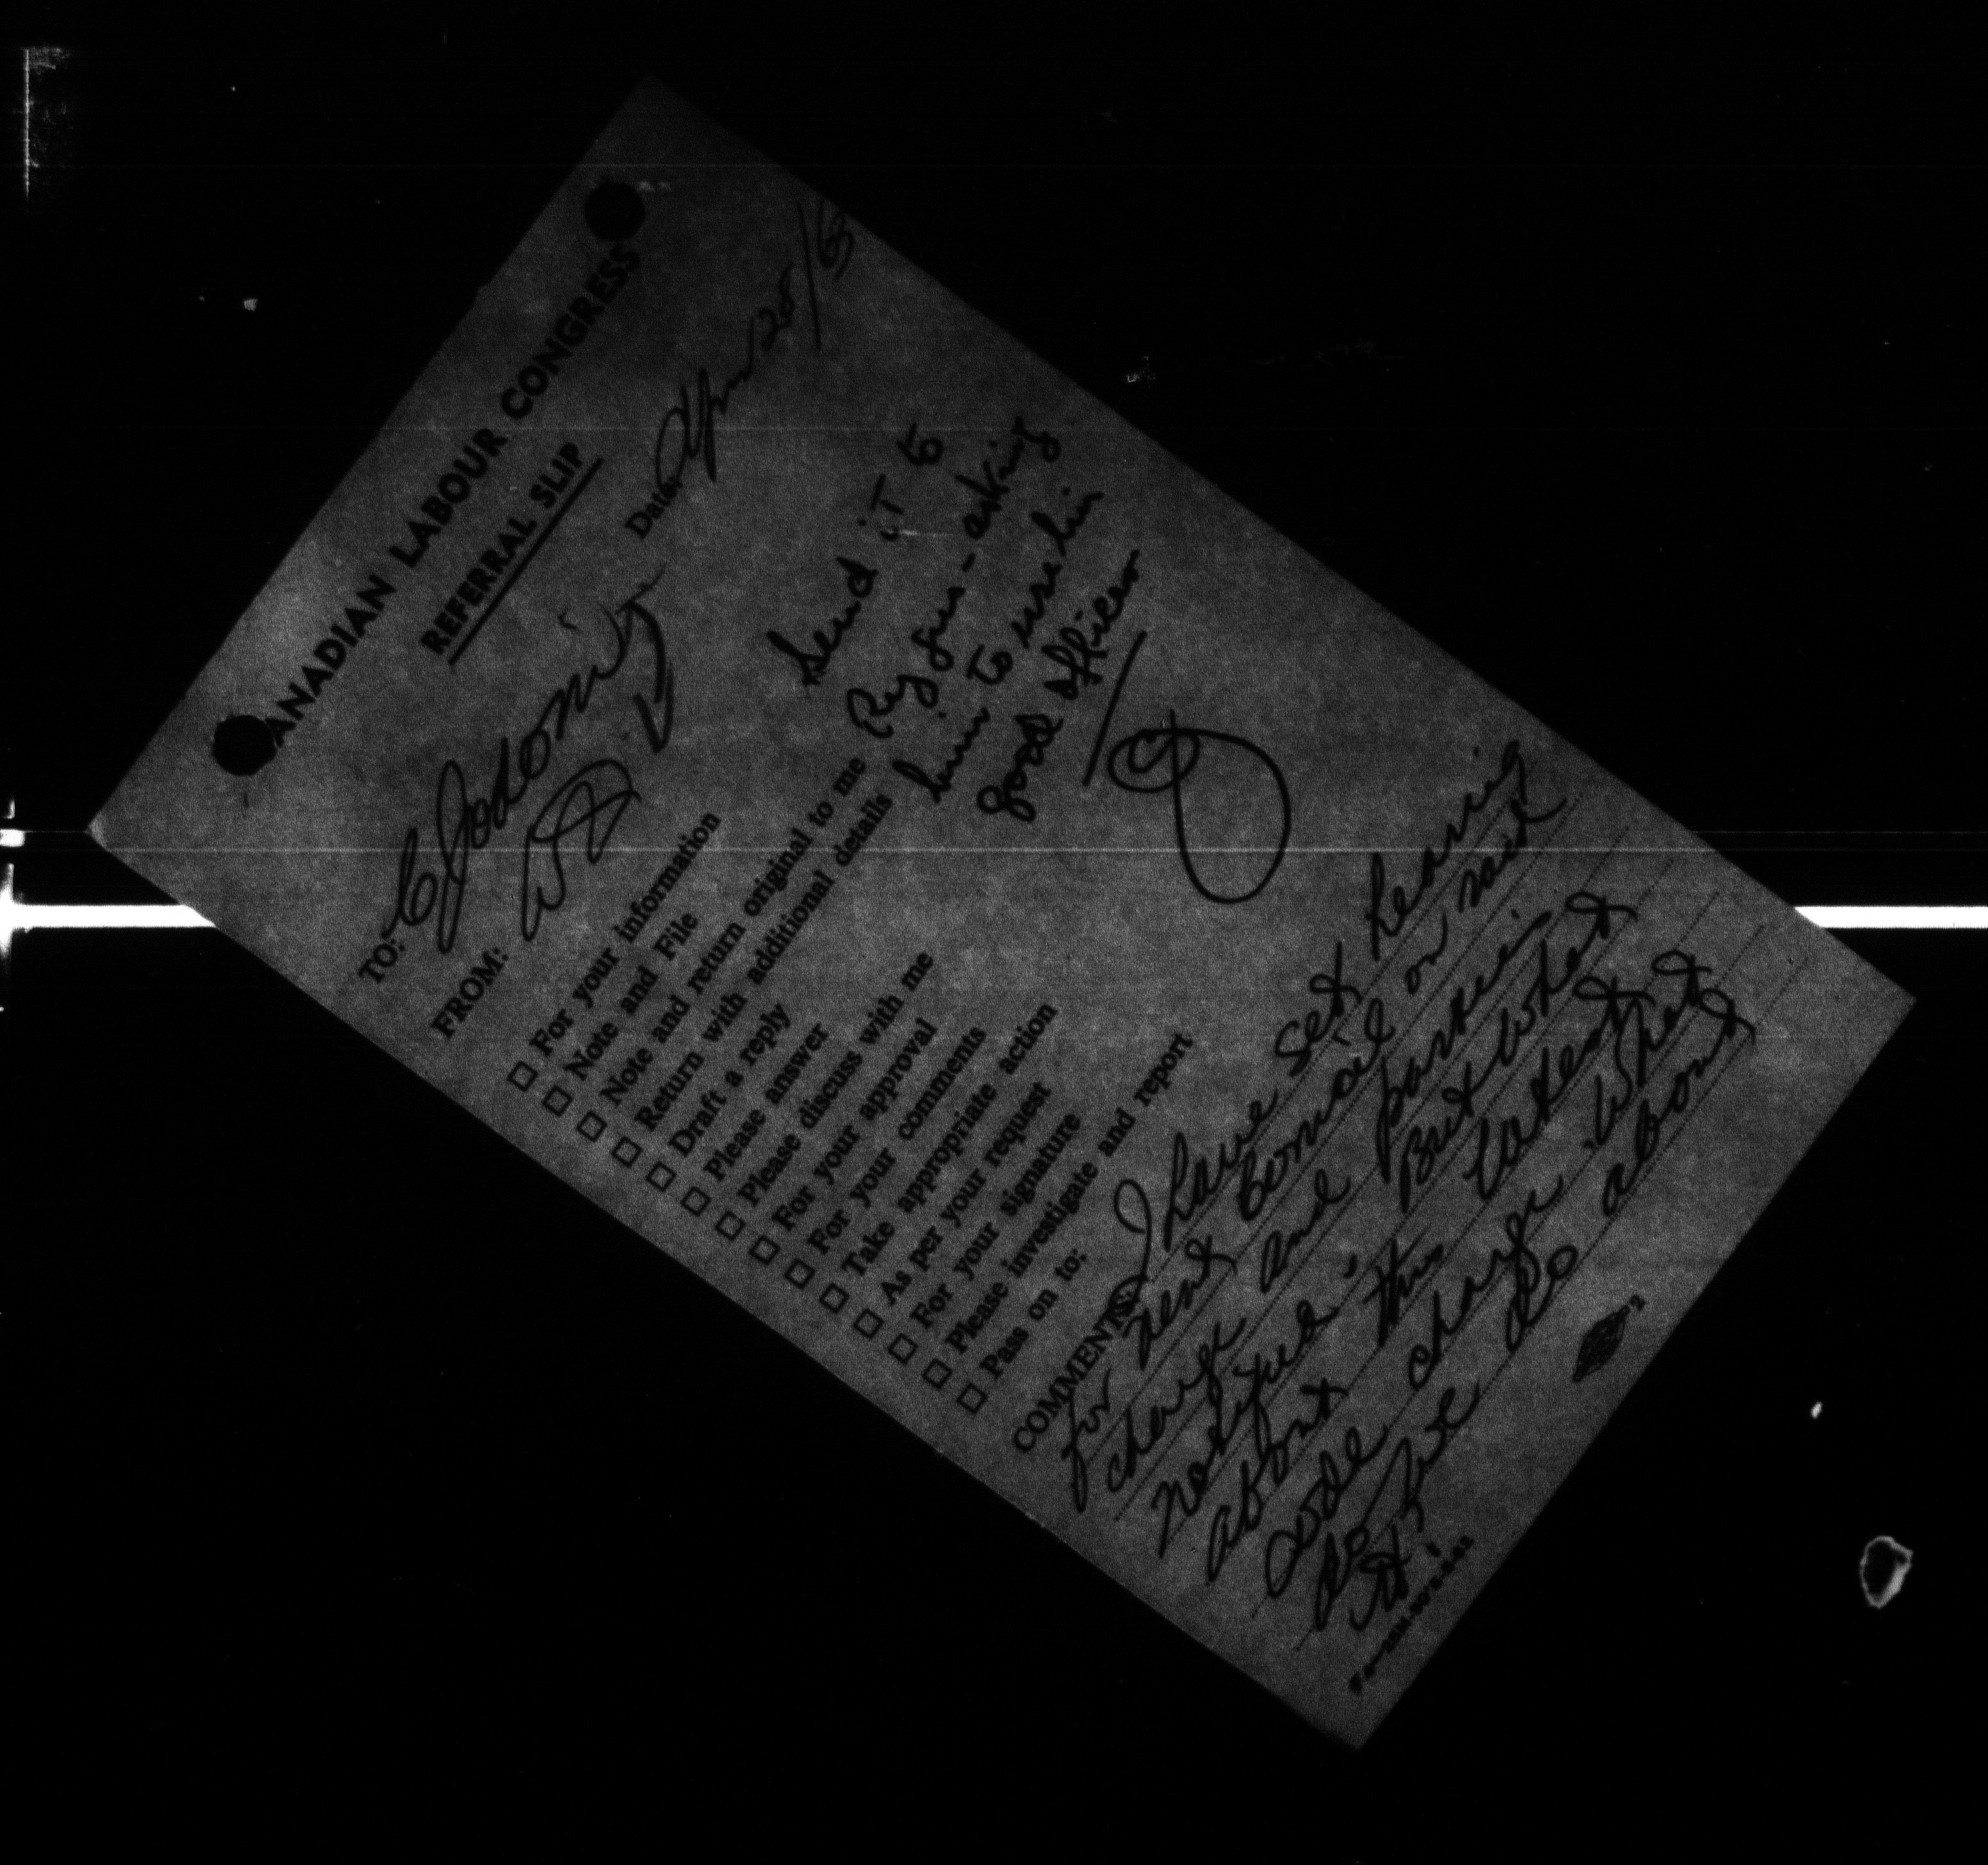 CANADIAN LABOUR CONGRESS
REFERRAL SLIP
Date: Apr 28/63
TO: C Jodoin
FROM:
For your information
Note and File
Note and return original to me
Return with additional details
Draft a reply
Please answer
Please discuss with me
For your approval
For your comments
Take appropriate action
As per your request
For your signature
Please investigate and report
Pass on to:
Send it to
asking
him to use his
good offices
COMMENTS: I have set hearing
for next Council on raid
charge and parties
notified. But what
about this latest
code charge. What
do we do about
it?